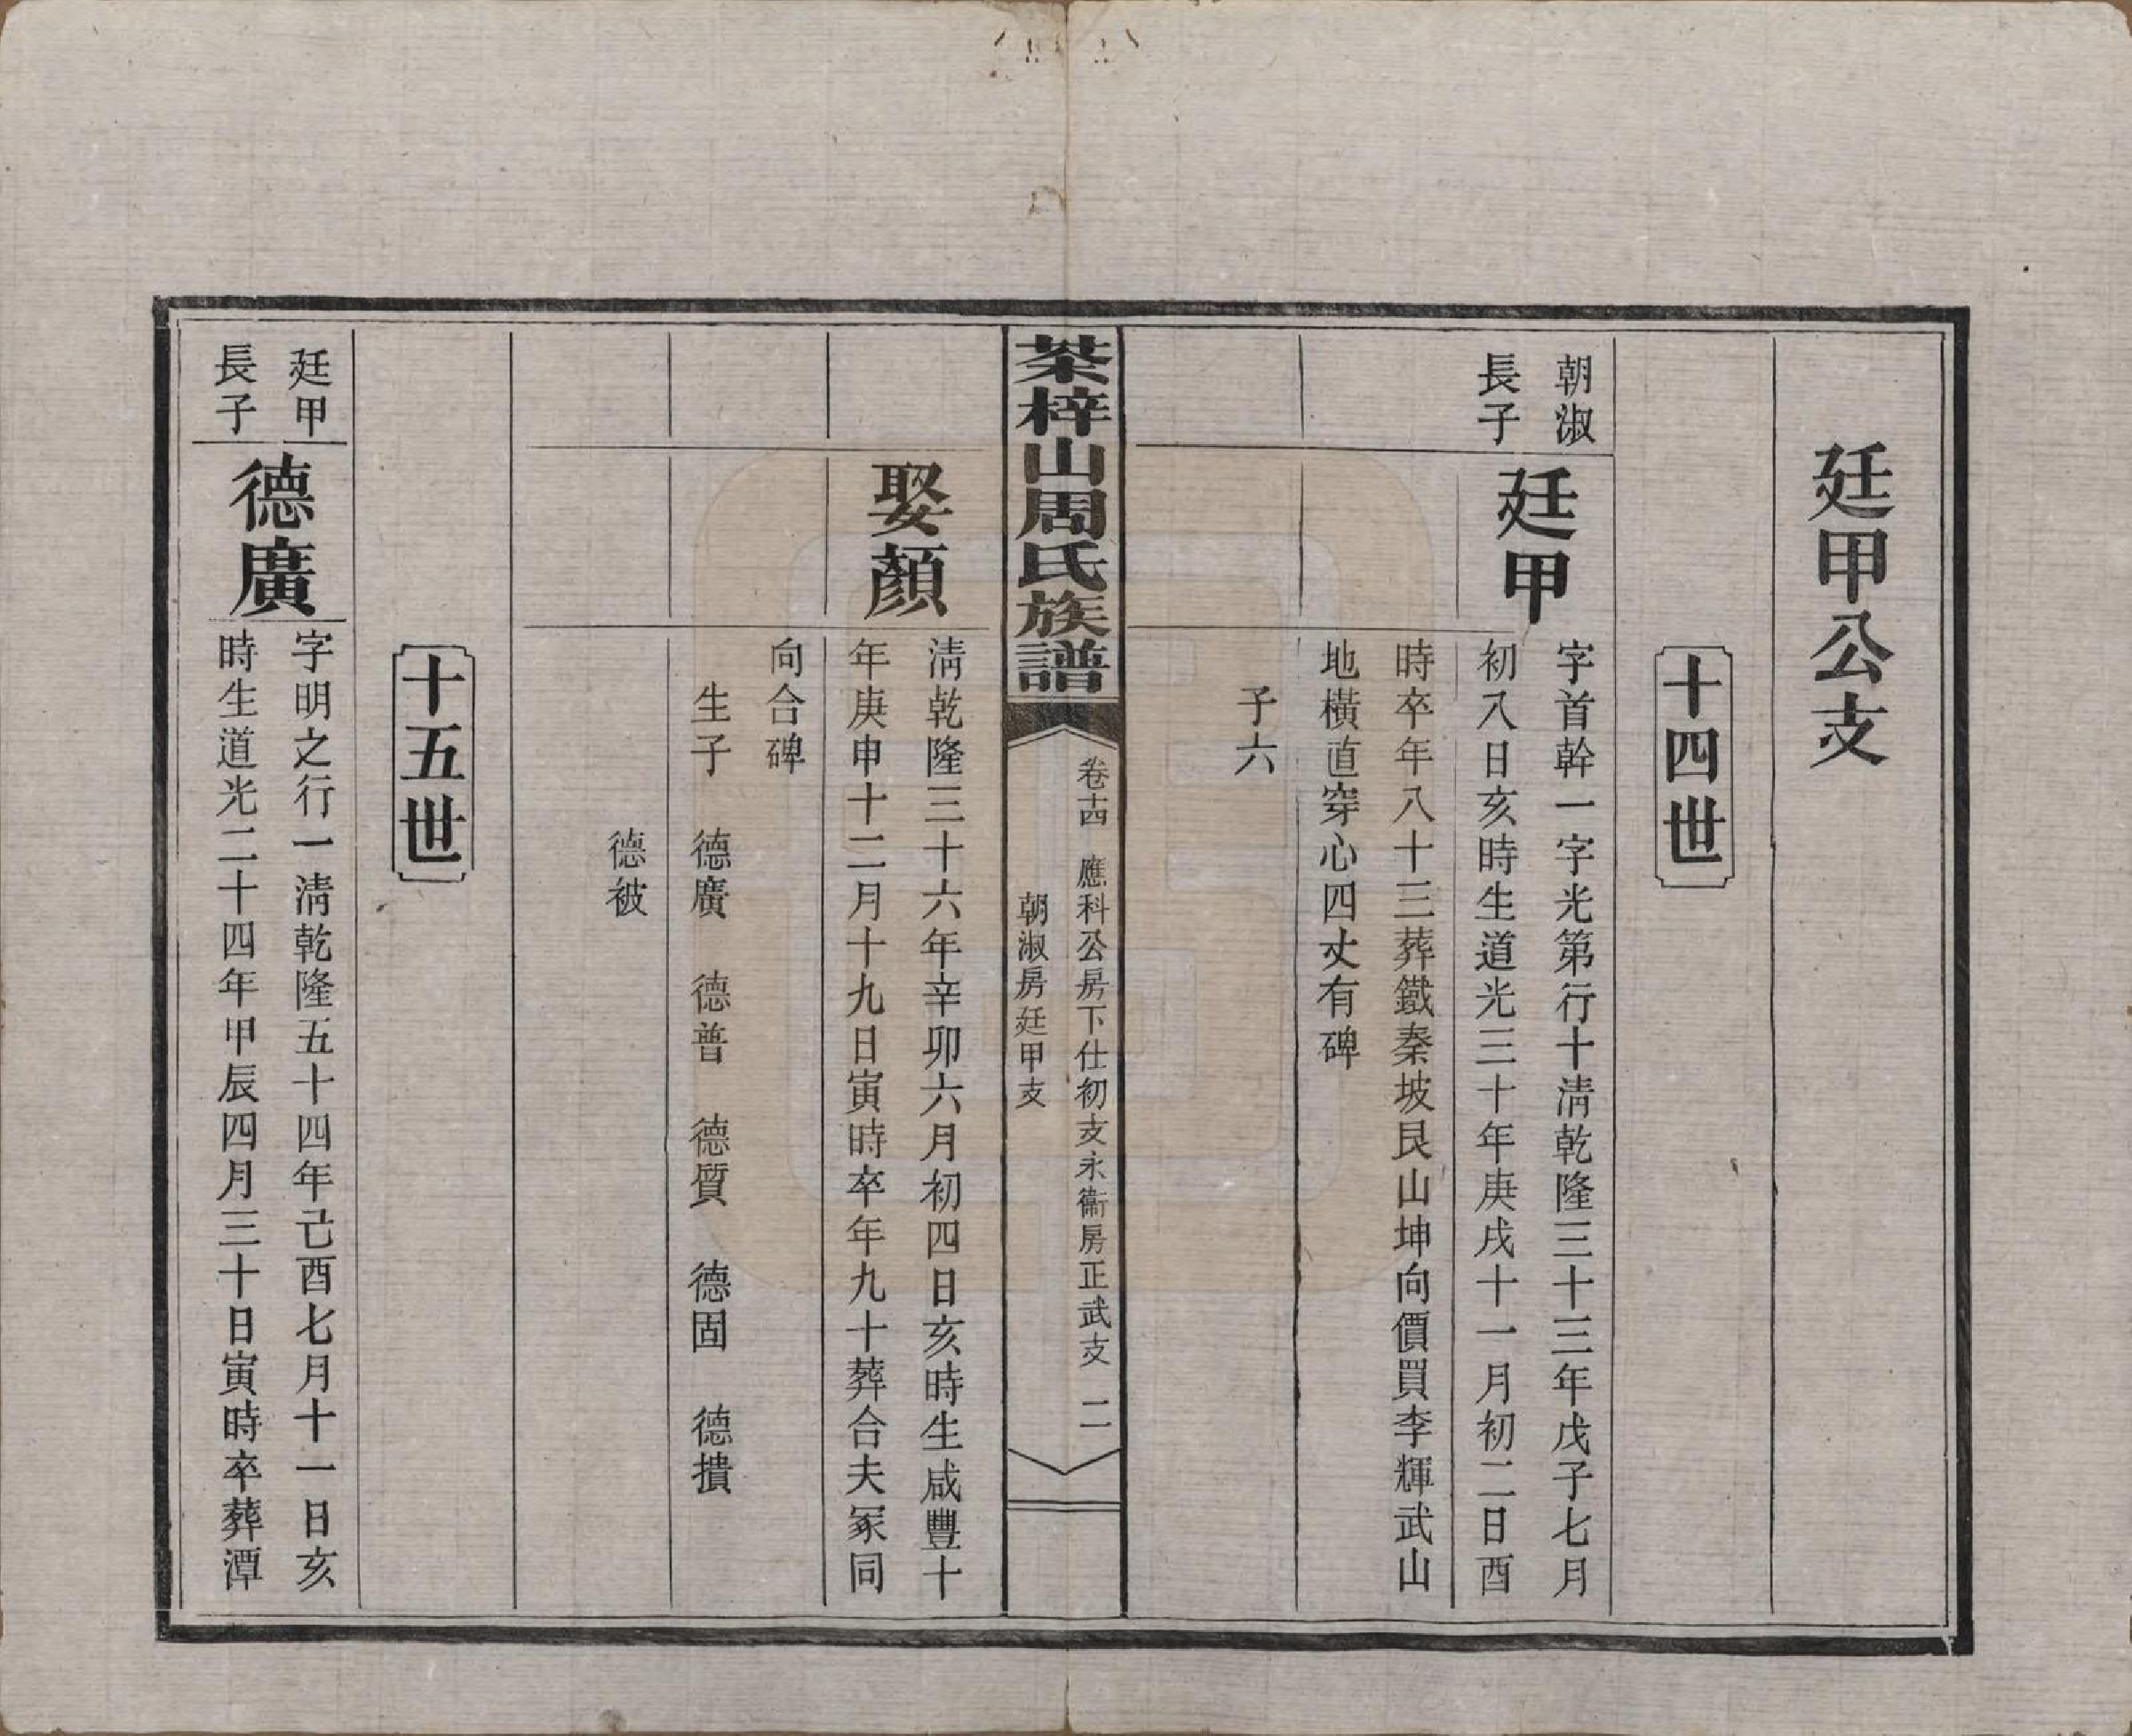 廷甲公支
十四世
朝淑
長子
廷甲
字首幹一字光第行十淸乾隆三十三年戊子七月
初八日亥時生道光三十年庚戌十一月初二日酉
時卒年八十三葬鐵秦坡艮山坤向價買李輝武山
地橫直穿心四丈有碑
子六
茶梓山周氏族譜
卷十四 應科公房下仕初支永衞房正武支 二
朝淑房廷甲支
娶顏
淸乾隆三十六年辛卯六月初四日亥時生咸豐十
年庚申十二月十九日寅時卒年九十葬合夫冢同
向合碑
生子 德廣 德普 德質 德固 德㩓
德被
十五世
廷甲
長子
德廣
字明之行一淸乾隆五十四年己酉七月十一日亥
時生道光二十四年甲辰四月三十日寅時卒葬潭